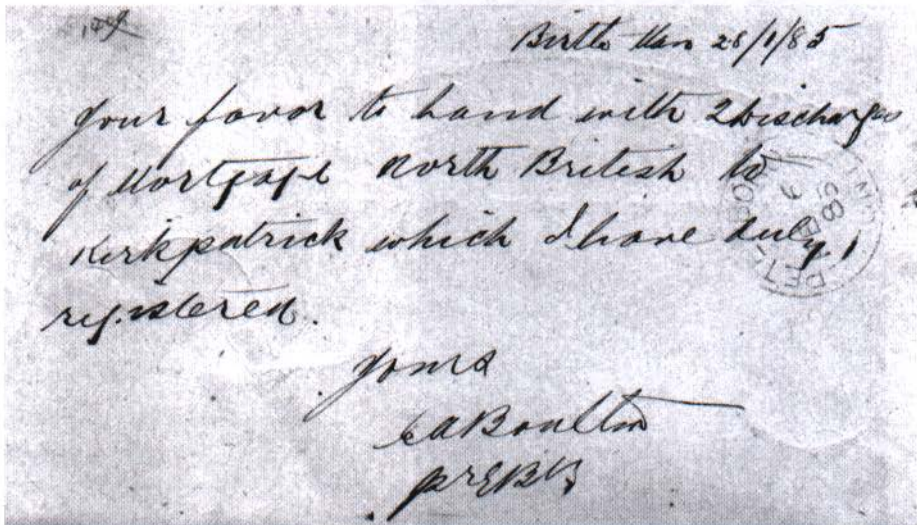 Birtle Man 28/1/85
Your favor to hand with 2 Discharges
of Mortgage North British to
Kirkpatrick which I have duly
registered.
Yours
CABoulton